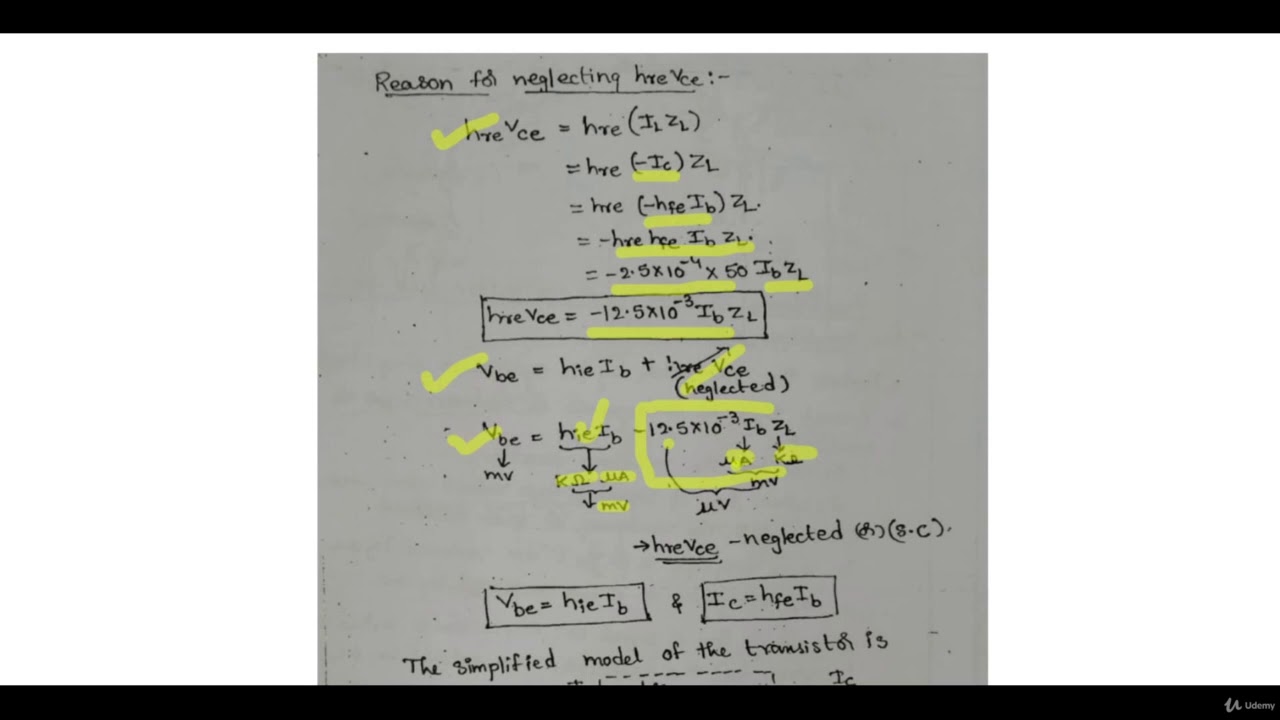 Reason for neglecting hreVce :-
hreVce = hre (IL ZL)
= hre (-Ic) ZL
= hre (-hfe Ib) ZL.
= -hre hfe Ib ZL.
= -2.5×10⁻⁴ × 50 Ib ZL
hreVce = -12.5×10⁻³ Ib ZL
Vbe = hie Ib + hre Vce
(neglected)
Vbe = hie Ib - 12.5×10⁻³ Ib ZL
mV KΩ μA μA KΩ
mV μV mV
→ hreVce - neglected (or) (S.C).
Vbe = hie Ib & Ic = hfe Ib
The simplified model of the transistor is
Ic
Udemy